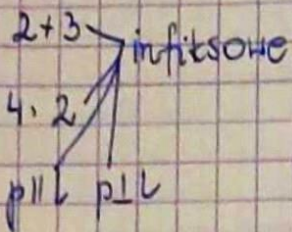 2+3
infiksowe
4·2
p||l p⊥l